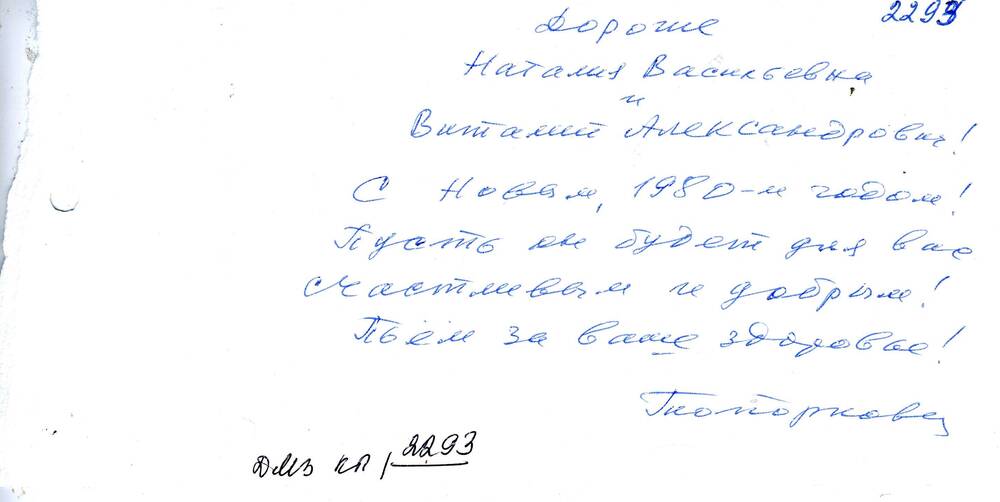 2293
Дорогие
Наталия Васильевна
и
Виталий Александрович!
С Новым, 1980-м годом!
Пусть он будет для вас
счастливым и добрым!
Пьём за ваше здоровье!
ДМЗ КП, 2293